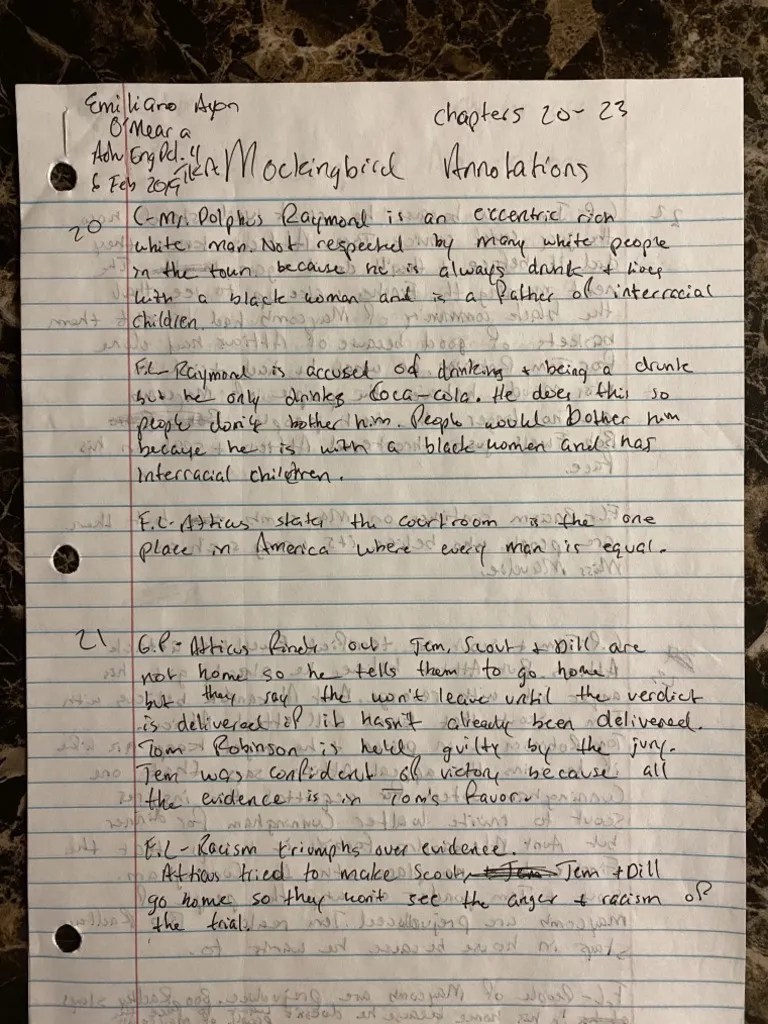 Emiliano Ayon
O'Meara
Adv Eng Pd. 4
6 Feb 2019
chapters 20-23
TKA Mockingbird Annotations
20 C-Mr. Dolphus Raymond is an eccentric rich
white man. Not respected by many white people
in the town because he is always drunk + lives
with a black woman and is a father of interracial
children.
E.L- Raymond is accused of drinking + being a drunk
but he only drinks Coca-cola. He does this so
people don't bother him. People would bother him
because he is with a black women and has
interracial children.
E.L- Atticus states the courtroom is the one
place in America where every man is equal.
21 G.P- Atticus finds out Jem, Scout + Dill are
not home so he tells them to go home
but they say the won't leave until the verdict
is delivered if it hasn't already been delivered.
Tom Robinson is held guilty by the jury.
Jem was confident of victory because all
the evidence is in Tom's favor.
E.L- Racism triumphs over evidence.
Atticus tried to make Scout, Jem + Dill
go home so they won't see the anger + racism of
the trial.